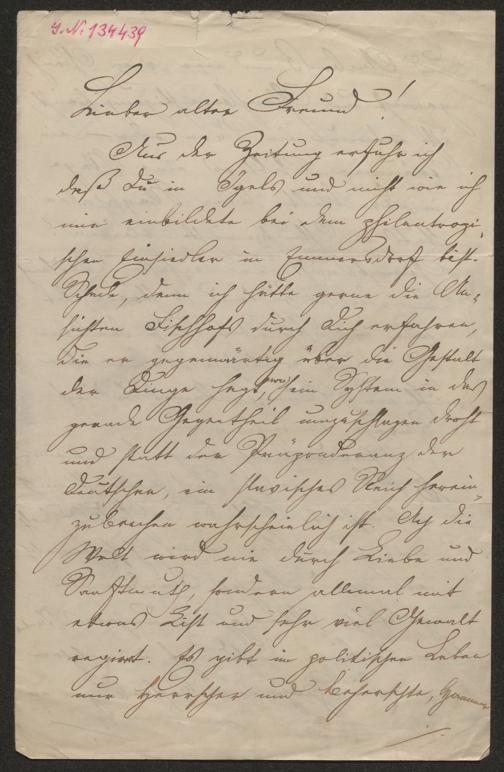 I.N. 134439
Lieber alter Freund!
Aus der Zeitung erfuhr ich
daß Du in Igels und nicht wie ich
mir einbildete bei dem philantropi-
schen Einsiedler in Emmersdorf bist.
Schade, denn ich hätte gerne die An-
sichten Bischhofs durch Dich erfahren,
die er gegenwärtig über die Gestalt
der Dinge hegt, sein System in das
gerade Gegentheil umzuschlagen droht
und statt der Präponderanz der
Deutschen, ein slavisches Reich herein-
zubrechen wahrscheinlich ist. Ach die
Welt wird nie durch Liebe und
Sanftmuth, sondern allemal mit
etwas List und sehr viel Gewalt
regiert. Es gibt im politischen Leben
nur Herrscher und Beherrschte,